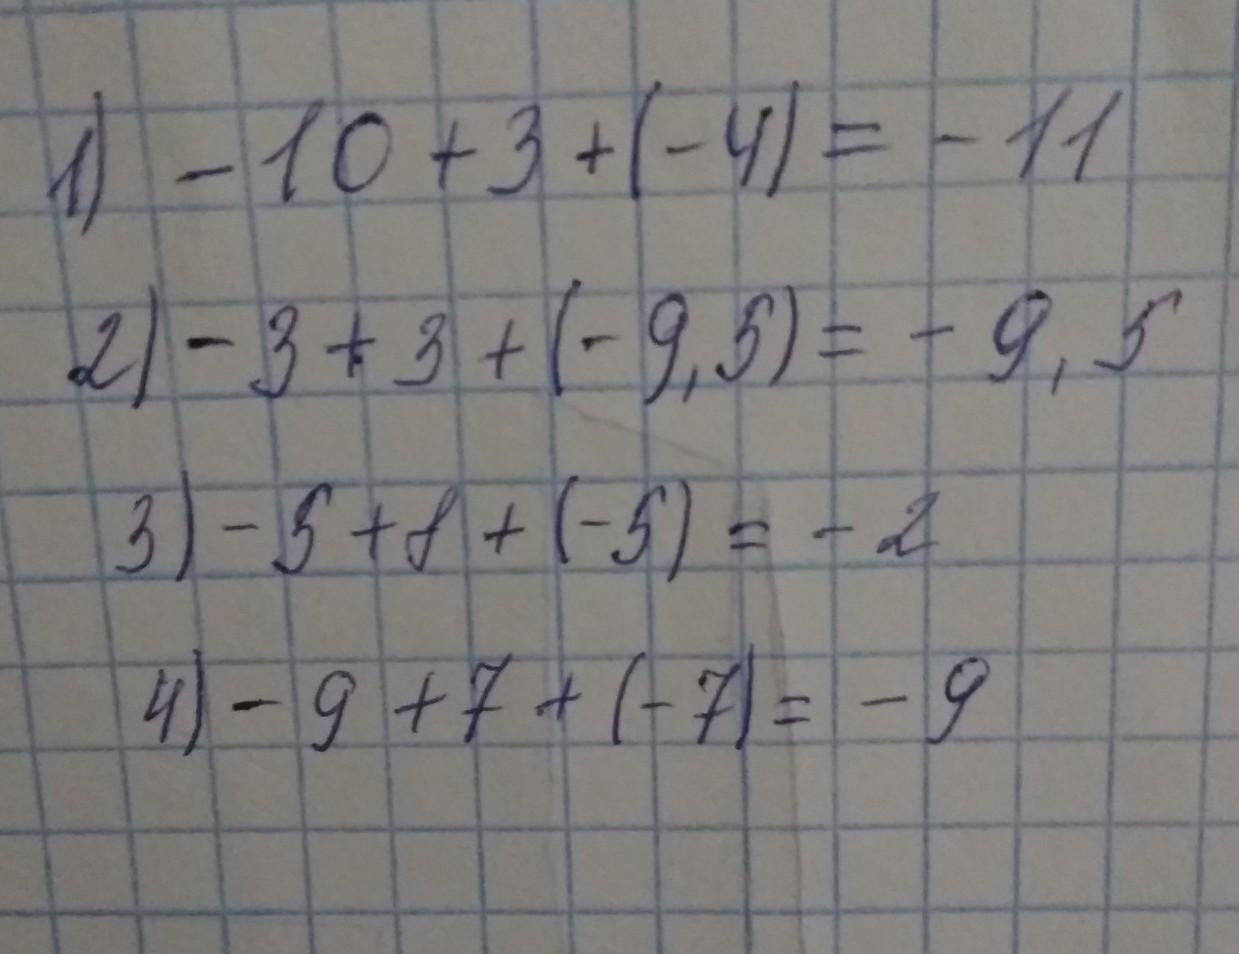 1) - 10 + 3 + (- 4) = - 11
2) - 3 + 3 + (- 9,5) = - 9,5
3) - 5 + 8 + (- 5) = - 2
4) - 9 + 7 + (- 7) = - 9